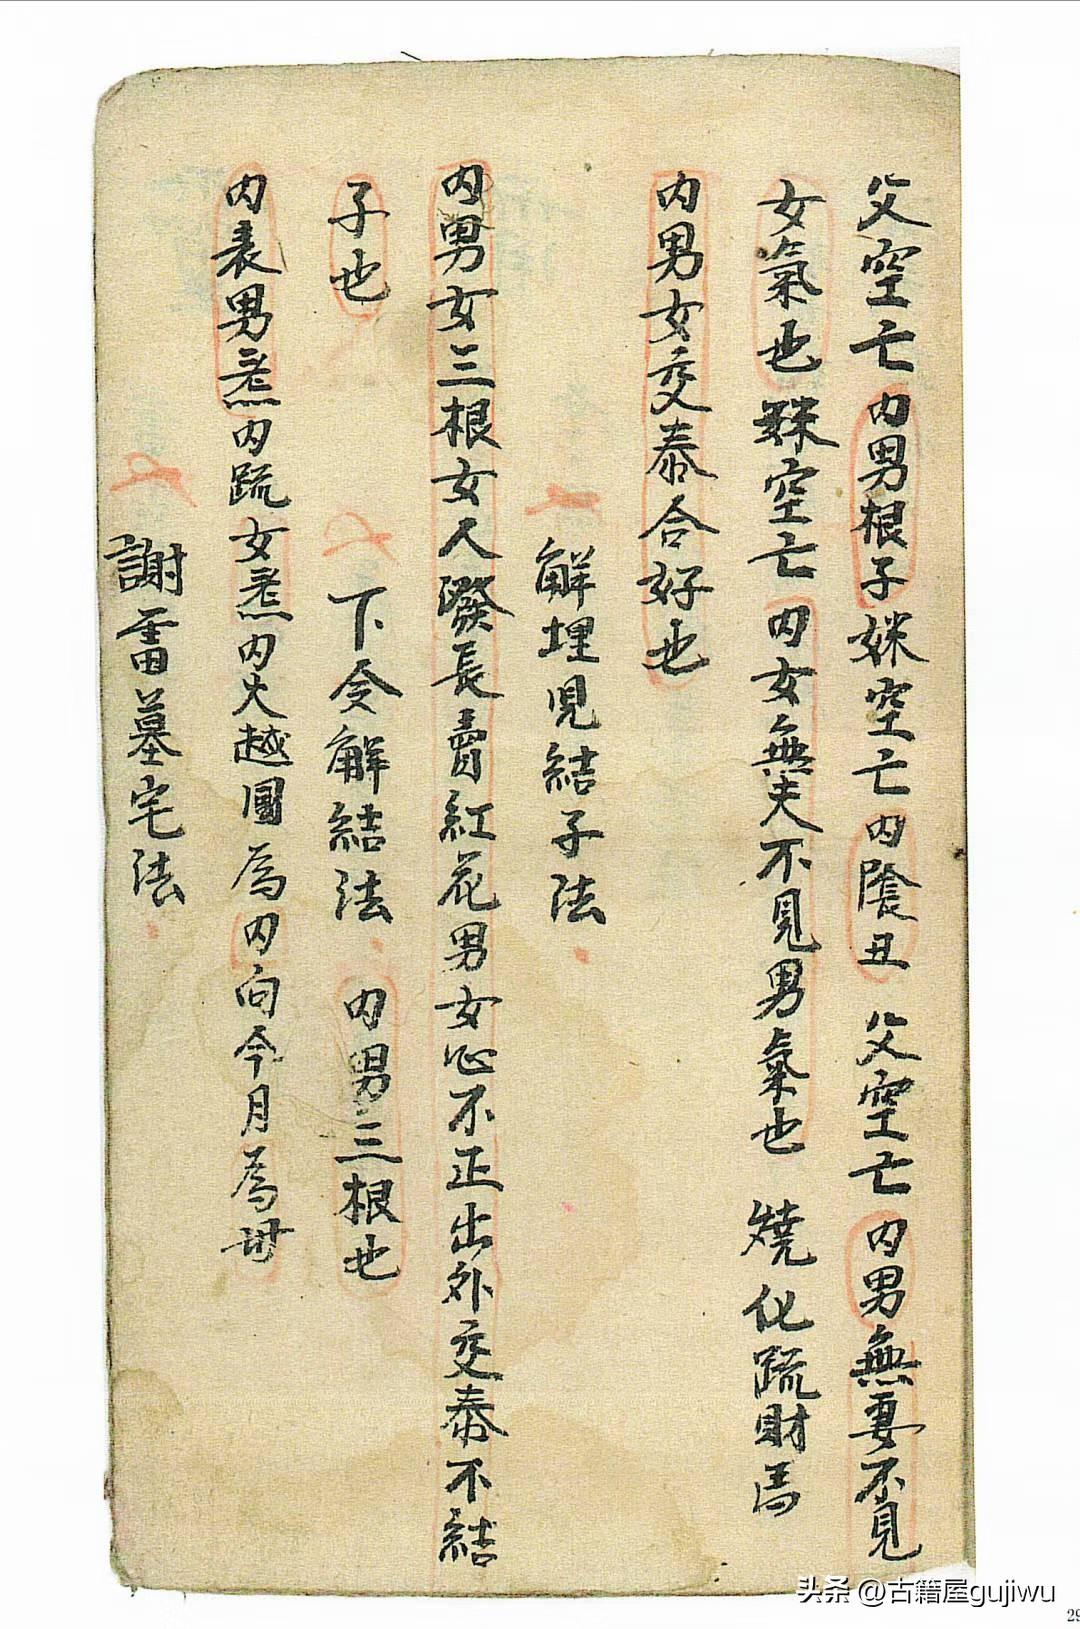 父空亡內男根子姝空亡內陰丑 父空亡內男無妻不見
女氣也姝空亡內女無夫不見男氣也 燒化疏財馬
內男女交泰合好也
解埋見結子法
內男女三根女人發長賣紅花男女心不正出外交泰不結
子也 下令解結法 內男三根也
內表男羔內疏女羔內火越國為內向今月為毋
謝雷墓宅法
头条@古籍屋gujiwu
29